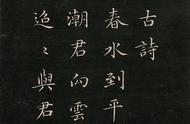 古詩
春水到平
潮君向雲
迢〻與君